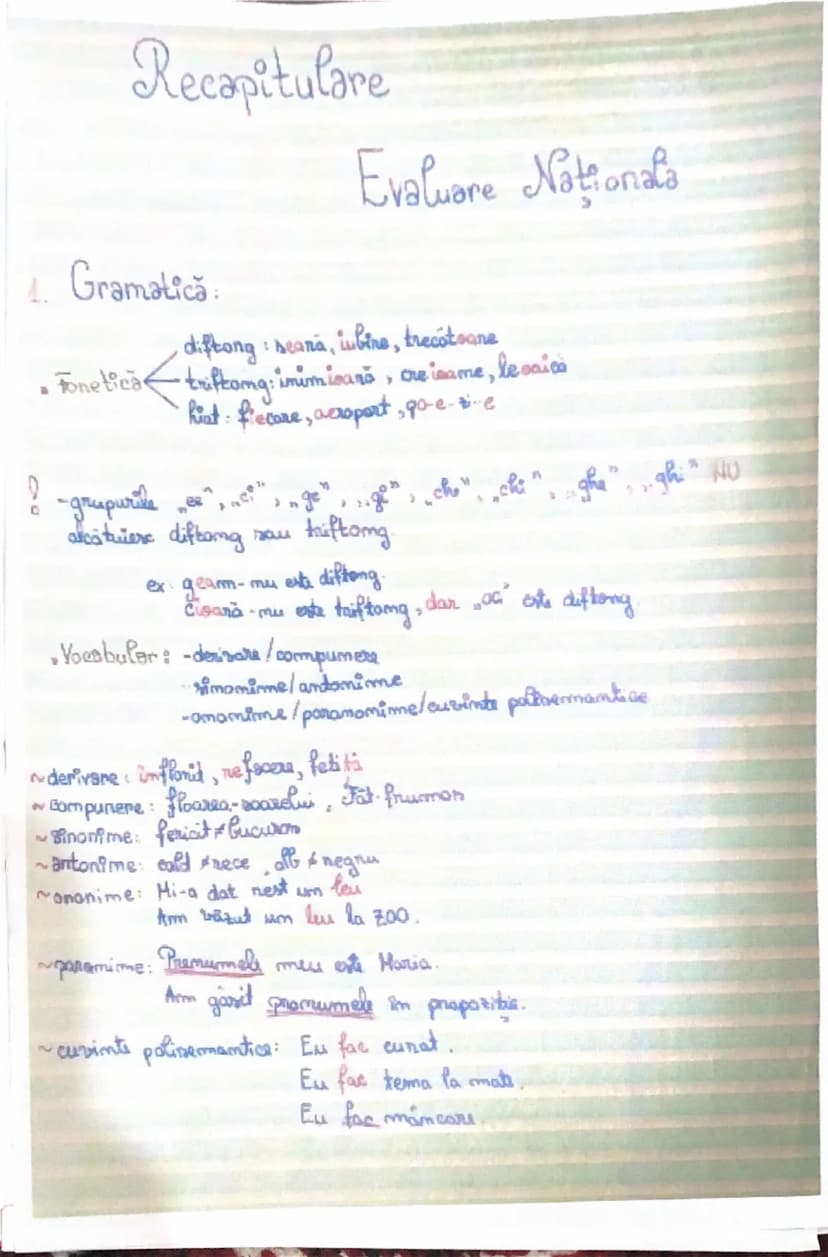 Recapitulare
Evaluare Națională
1. Gramatică:
diftong: seară, iubire, trecătoare
• Fonetică
triftong: inimioară, creioane, leoaică
hiat: fiecare, aeroport, po-e-zi-e
! -grupurile „ce", „ci", „ge", „gi", „che", „chi", „ghe", „ghi" NU
alcătuiesc diftong sau triftong.
ex: geam- nu este diftong.
cioară -nu este triftong, dar „oa" este diftong
• Vocabular: -derivare/compunere
-sinonime/antonime
-omonime/paranonime/cuvinte polisemantice
~derivare: înflorit, refacere, fetiță
~compunere: floarea-soarelui, Făt-frumos
~sinonime: fericit≠bucuros
~antonime: cald ≠rece, alb ≠ negru
~ononime: Mi-a dat rest un leu
Am văzut un leu la zoo.
~paronime: Prenumele meu este Maria.
Am găsit pronumele în propoziție.
~cuvinte polisemantice: Eu fac curat.
Eu fac tema la mate.
Eu fac mâncare.